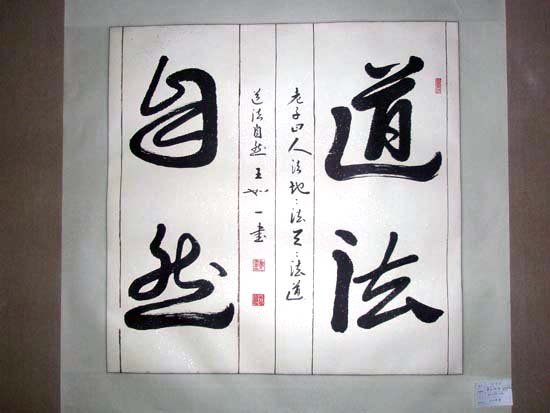 道法
老子曰人法地〻法天〻法道
道法自然王如一書
自然